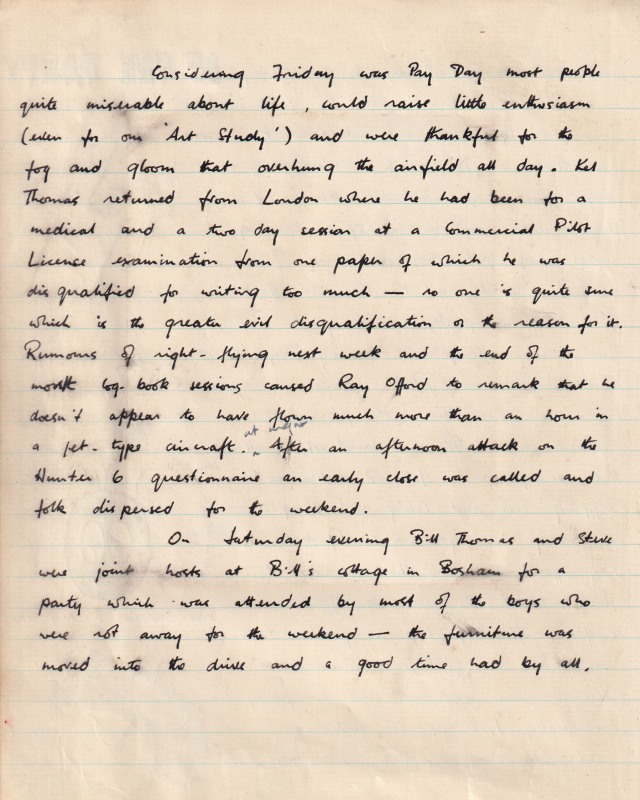 Considering Friday was Pay Day most people
quite miserable about life, could raise little enthusiasm
(even for our 'Art Study') and were thankful for the
fog and gloom that overhung the airfield all day. Kel
Thomas returned from London where he had been for a
medical and a two day session at a Commercial Pilot
License examination from one paper of which he was
disqualified for writing too much — no one is quite sure
which is the greater evil disqualification or the reason for it.
Rumours of night-flying next week and the end of the
month log-book sessions caused Ray Offord to remark that he
doesn't appear to have flown much more than an hour in
a jet-type aircraft. at night
After an afternoon attack on the
Hunter 6 questionnaire an early close was called and
folk dispersed for the weekend.
On Saturday evening Bill Thomas and Steve
were joint hosts at Bill's cottage in Bosham for a
party which was attended by most of the boys who
were not away for the weekend — the furniture was
moved into the drive and a good time had by all.